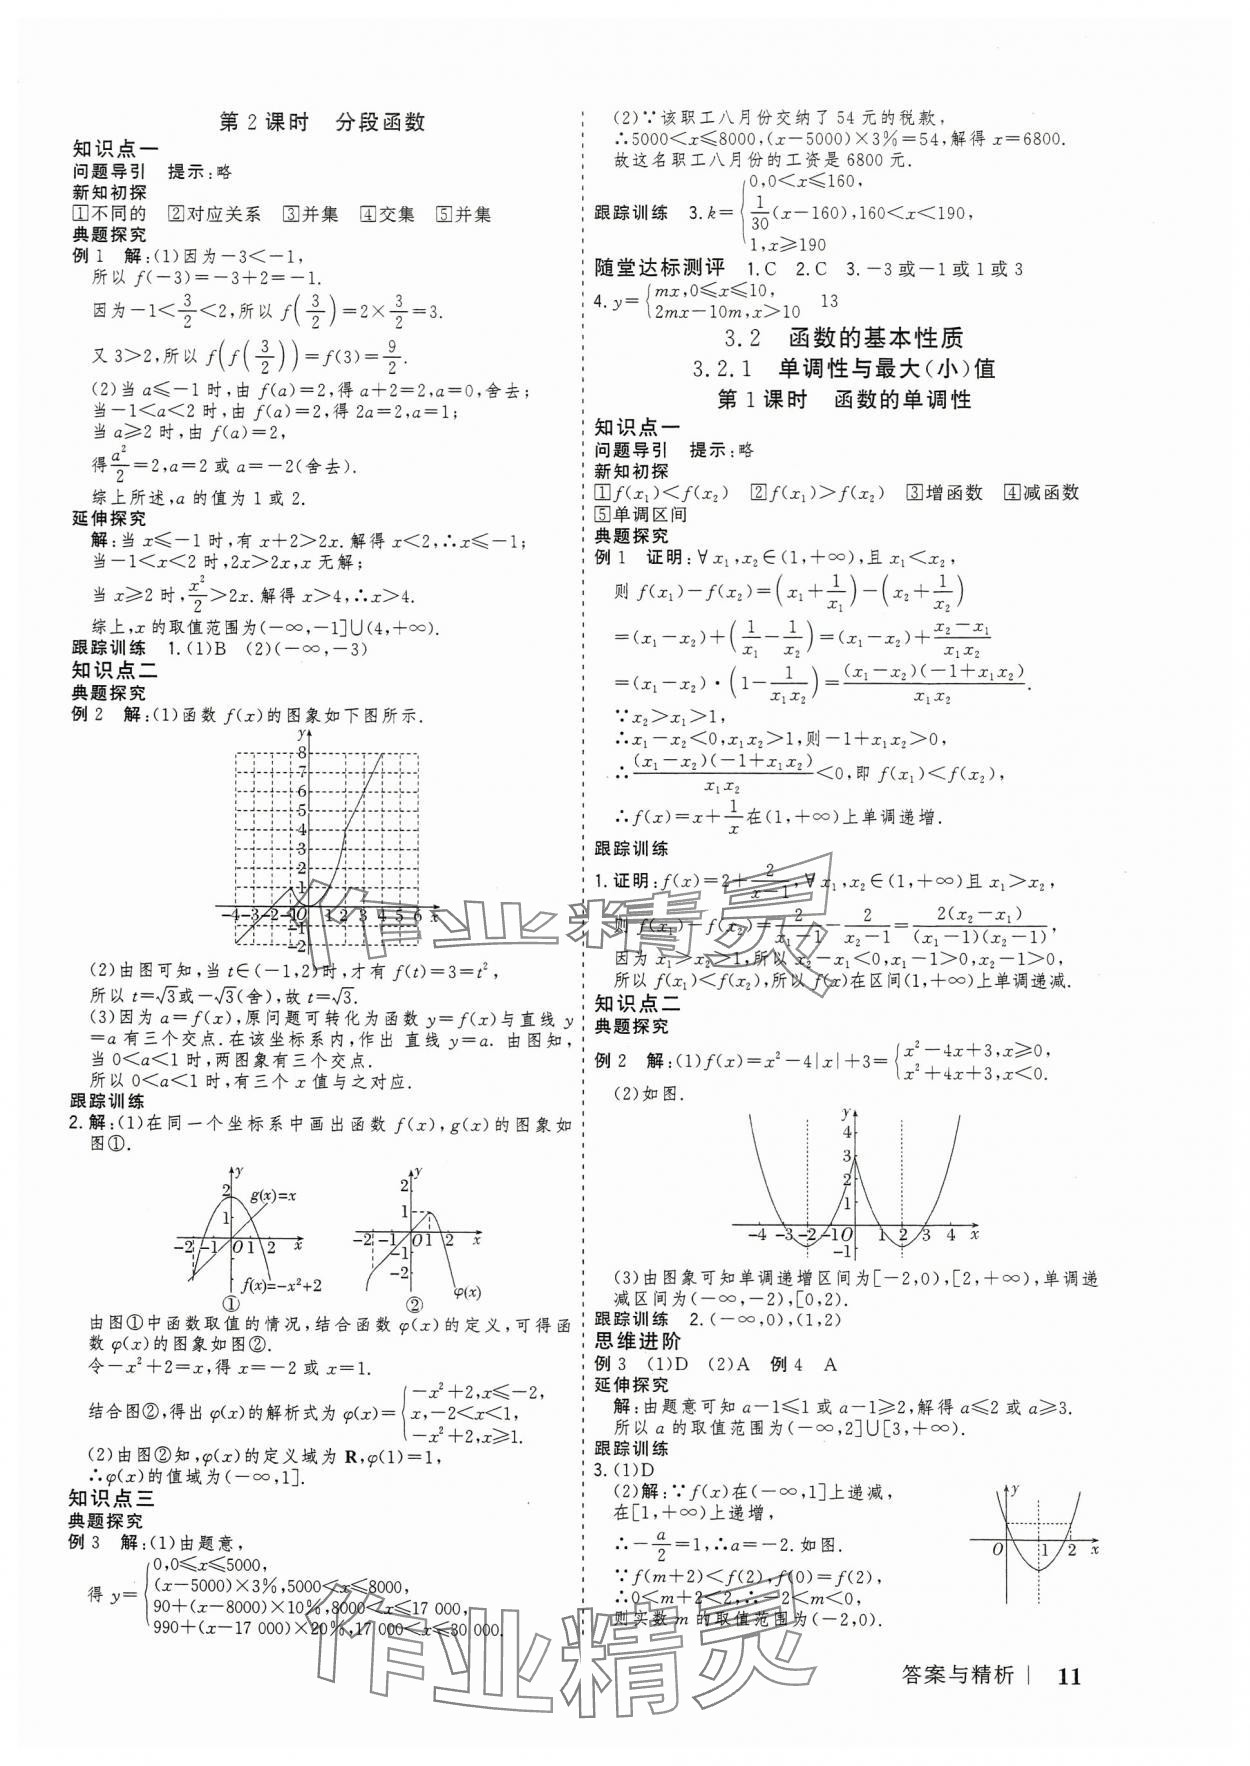 第2课时 分段函数
知识点一
问题导引 提示:略
新知初探
1不同的 2对应关系 3并集 4交集 5并集
典题探究
例1 解:(1)因为-3<-1,
所以 f(-3)=-3+2=-1.
因为-1<3/2<2,所以 f(3/2)=2×3/2=3.
又 3>2,所以 f(f(3/2))=f(3)=9/2.
(2)当 a≤-1 时,由 f(a)=2,得 a+2=2,a=0,舍去;
当-1<a<2 时,由 f(a)=2,得 2a=2,a=1;
当 a≥2 时,由 f(a)=2,
得a²/2=2,a=2 或 a=-2(舍去).
综上所述,a 的值为 1 或 2.
延伸探究
解:当 x≤-1 时,有 x+2>2x.解得 x<2,∴x≤-1;
当-1<x<2 时,2x>2x,x 无解;
当 x≥2 时,x²/2>2x.解得 x>4,∴x>4.
综上,x 的取值范围为(-∞,-1]∪(4,+∞).
跟踪训练 1.(1)B (2)(-∞,-3)
知识点二
典题探究
例2 解:(1)函数 f(x)的图象如下图所示.
y
8
7
6
5
4
3
2
1
-4-3-2-1O 1 2 3 4 5 6 x
-1
-2
(2)由图可知,当 t∈(-1,2)时,才有 f(t)=3=t²,
所以 t=√3或-√3(舍),故 t=√3.
(3)因为 a=f(x),原问题可转化为函数 y=f(x)与直线 y
=a 有三个交点.在该坐标系内,作出 直线 y=a. 由图知,
当 0<a<1 时,两图象有三个交点.
所以 0<a<1 时,有三个 x 值与之对应.
跟踪训练
2.解:(1)在同一个坐标系中画出函数 f(x),g(x)的图象如
图①.
y
2
1
g(x)=x
-2 -1 O 1 2 x
f(x)=-x²+2
①
y
2
1
-2 -1 O 1 2 x
-1
-2
φ(x)
②
由图①中函数取值的情况,结合函数 φ(x)的定义,可得函
数 φ(x)的图象如图②.
令-x²+2=x,得 x=-2 或 x=1.
结合图②,得出 φ(x)的解析式为 φ(x)={-x²+2,x≤-2,
x,-2<x<1,
-x²+2,x≥1.
(2)由图②知,φ(x)的定义域为 R,φ(1)=1,
∴φ(x)的值域为(-∞,1].
知识点三
典题探究
例3 解:(1)由题意,
得 y={0,0≤x≤5000,
(x-5000)×3%,5000<x≤8000,
90+(x-8000)×10%,8000<x≤17 000,
990+(x-17 000)×20%,17 000<x≤30 000.
(2)∵该职工八月份交纳了 54 元的税款,
∴5000<x≤8000,(x-5000)×3%=54,解得 x=6800.
故这名职工八月份的工资是 6800 元.
跟踪训练 3.k={0,0<x≤160,
1/30(x-160),160<x<190,
1,x≥190
随堂达标测评 1.C 2.C 3.-3 或-1 或 1 或 3
4.y={mx,0≤x≤10,
2mx-10m,x>10 13
3.2 函数的基本性质
3.2.1 单调性与最大(小)值
第1课时 函数的单调性
知识点一
问题导引 提示:略
新知初探
1f(x₁)<f(x₂) 2f(x₁)>f(x₂) 3增函数 4减函数
5单调区间
典题探究
例1 证明:∀x₁,x₂∈(1,+∞),且 x₁<x₂,
则 f(x₁)-f(x₂)=(x₁+1/x₁)-(x₂+1/x₂)
=(x₁-x₂)+(1/x₁-1/x₂)=(x₁-x₂)+(x₂-x₁)/(x₁x₂)
=(x₁-x₂)·(1-1/(x₁x₂))=(x₁-x₂)(-1+x₁x₂)/(x₁x₂).
∵x₂>x₁>1,
∴x₁-x₂<0,x₁x₂>1,则-1+x₁x₂>0,
∴(x₁-x₂)(-1+x₁x₂)/(x₁x₂)<0,即 f(x₁)<f(x₂),
∴f(x)=x+1/x在(1,+∞)上单调递增.
跟踪训练
1.证明:f(x)=2+2/(x-1),∀x₁,x₂∈(1,+∞)且 x₁>x₂,
则 f(x₁)-f(x₂)=2/(x₁-1)-2/(x₂-1)=2(x₂-x₁)/((x₁-1)(x₂-1)),
因为 x₁>x₂>1,所以 x₂-x₁<0,x₁-1>0,x₂-1>0,
所以 f(x₁)<f(x₂),所以 f(x)在区间(1,+∞)上单调递减.
知识点二
典题探究
例2 解:(1)f(x)=x²-4|x|+3={x²-4x+3,x≥0,
x²+4x+3,x<0.
(2)如图.
y
4
3
2
1
-4 -3 -2 -1 O 1 2 3 4 x
-1
(3)由图象可知单调递增区间为[-2,0),[2,+∞),单调递
减区间为(-∞,-2),[0,2).
跟踪训练 2.(-∞,0),(1,2)
思维进阶
例3 (1)D (2)A 例4 A
延伸探究
解:由题意可知 a-1≤1 或 a-1≥2,解得 a≤2 或 a≥3.
所以 a 的取值范围为(-∞,2]∪[3,+∞).
跟踪训练
3.(1)D
(2)解:∵f(x)在(-∞,1]上递减,
在[1,+∞)上递增,
∴-a/2=1,∴a=-2.如图.
∵f(m+2)<f(2),f(0)=f(2),
∴0<m+2<2,∴-2<m<0,
则实数 m 的取值范围为(-2,0).
y
O 1 2 x
作业精灵
作业精灵
答案与精析 | 11